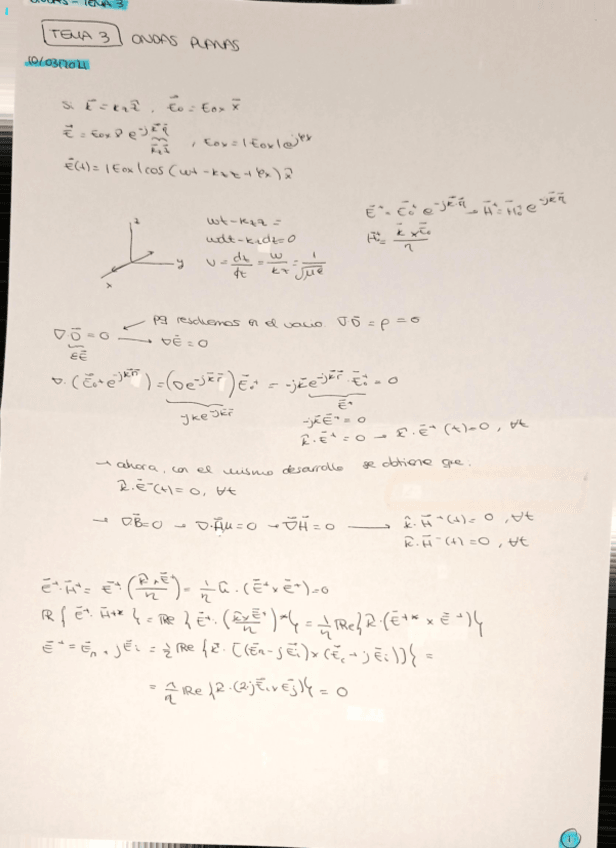 TEMA 3 ONDAS PLANAS
10/03/2021
Si k̄ = k_z ẑ, Ē₀ = E₀ₓ x̄
Ē = E₀ₓ x̂ e^{-jk̄r̄}, E₀ₓ = |E₀ₓ| e^{jφₓ}
k_z z
ē(t) = |E₀ₓ| cos(ωt - k_z z + φₓ) x̂
ωt - k_z z =
ωdt - k_z dz = 0
v = dz/dt = ω/k_z = 1/√με
z
y
x
Ē⁺ = Ē₀⁺ e^{-jk̄r̄} → H̄⁺ = H̄₀⁺ e^{-jk̄r̄}
H̄₀⁺ = k̂ × Ē₀ / η
pq resolvemos en el vacío ∇D̄ = ρ = 0
∇·D̄ = 0 → ∇Ē = 0
εĒ
∇·(Ē₀⁺ e^{-jk̄r̄}) = (∇e^{-jk̄r̄}) Ē₀⁺ = -jk̄ e^{-jk̄r̄} · Ē₀⁺ = 0
Ē⁺
-jk̄Ē⁺ = 0
k̂·Ē⁺ = 0 → k̂·ē⁺(t) = 0, ∀t
→ ahora, con el mismo desarrollo se obtiene que.
k̂·ē⁻(t) = 0, ∀t
→ ∇B̄ = 0 → ∇·H̄μ = 0 → ∇H̄ = 0 → k̂·H̄⁺(t) = 0, ∀t
k̂·H̄⁻(t) = 0, ∀t
Ē⁺·H̄⁺ = Ē⁺·(k̂ × Ē⁺ / η) = 1/η k̂·(Ē⁺ × Ē⁺) = 0
Re{Ē⁺·H̄⁺*} = Re{Ē⁺·(k̂ × Ē⁺ / η)*} = 1/η Re{k̂·(Ē⁺* × Ē⁺)}
Ē⁺ = Ē_r + jĒ_i = 1/η Re{k̂·[(Ē_r - jĒ_i) × (Ē_r + jĒ_i)]} =
= 1/η Re{k̂·(2jĒ_i × Ē_j)} = 0
1